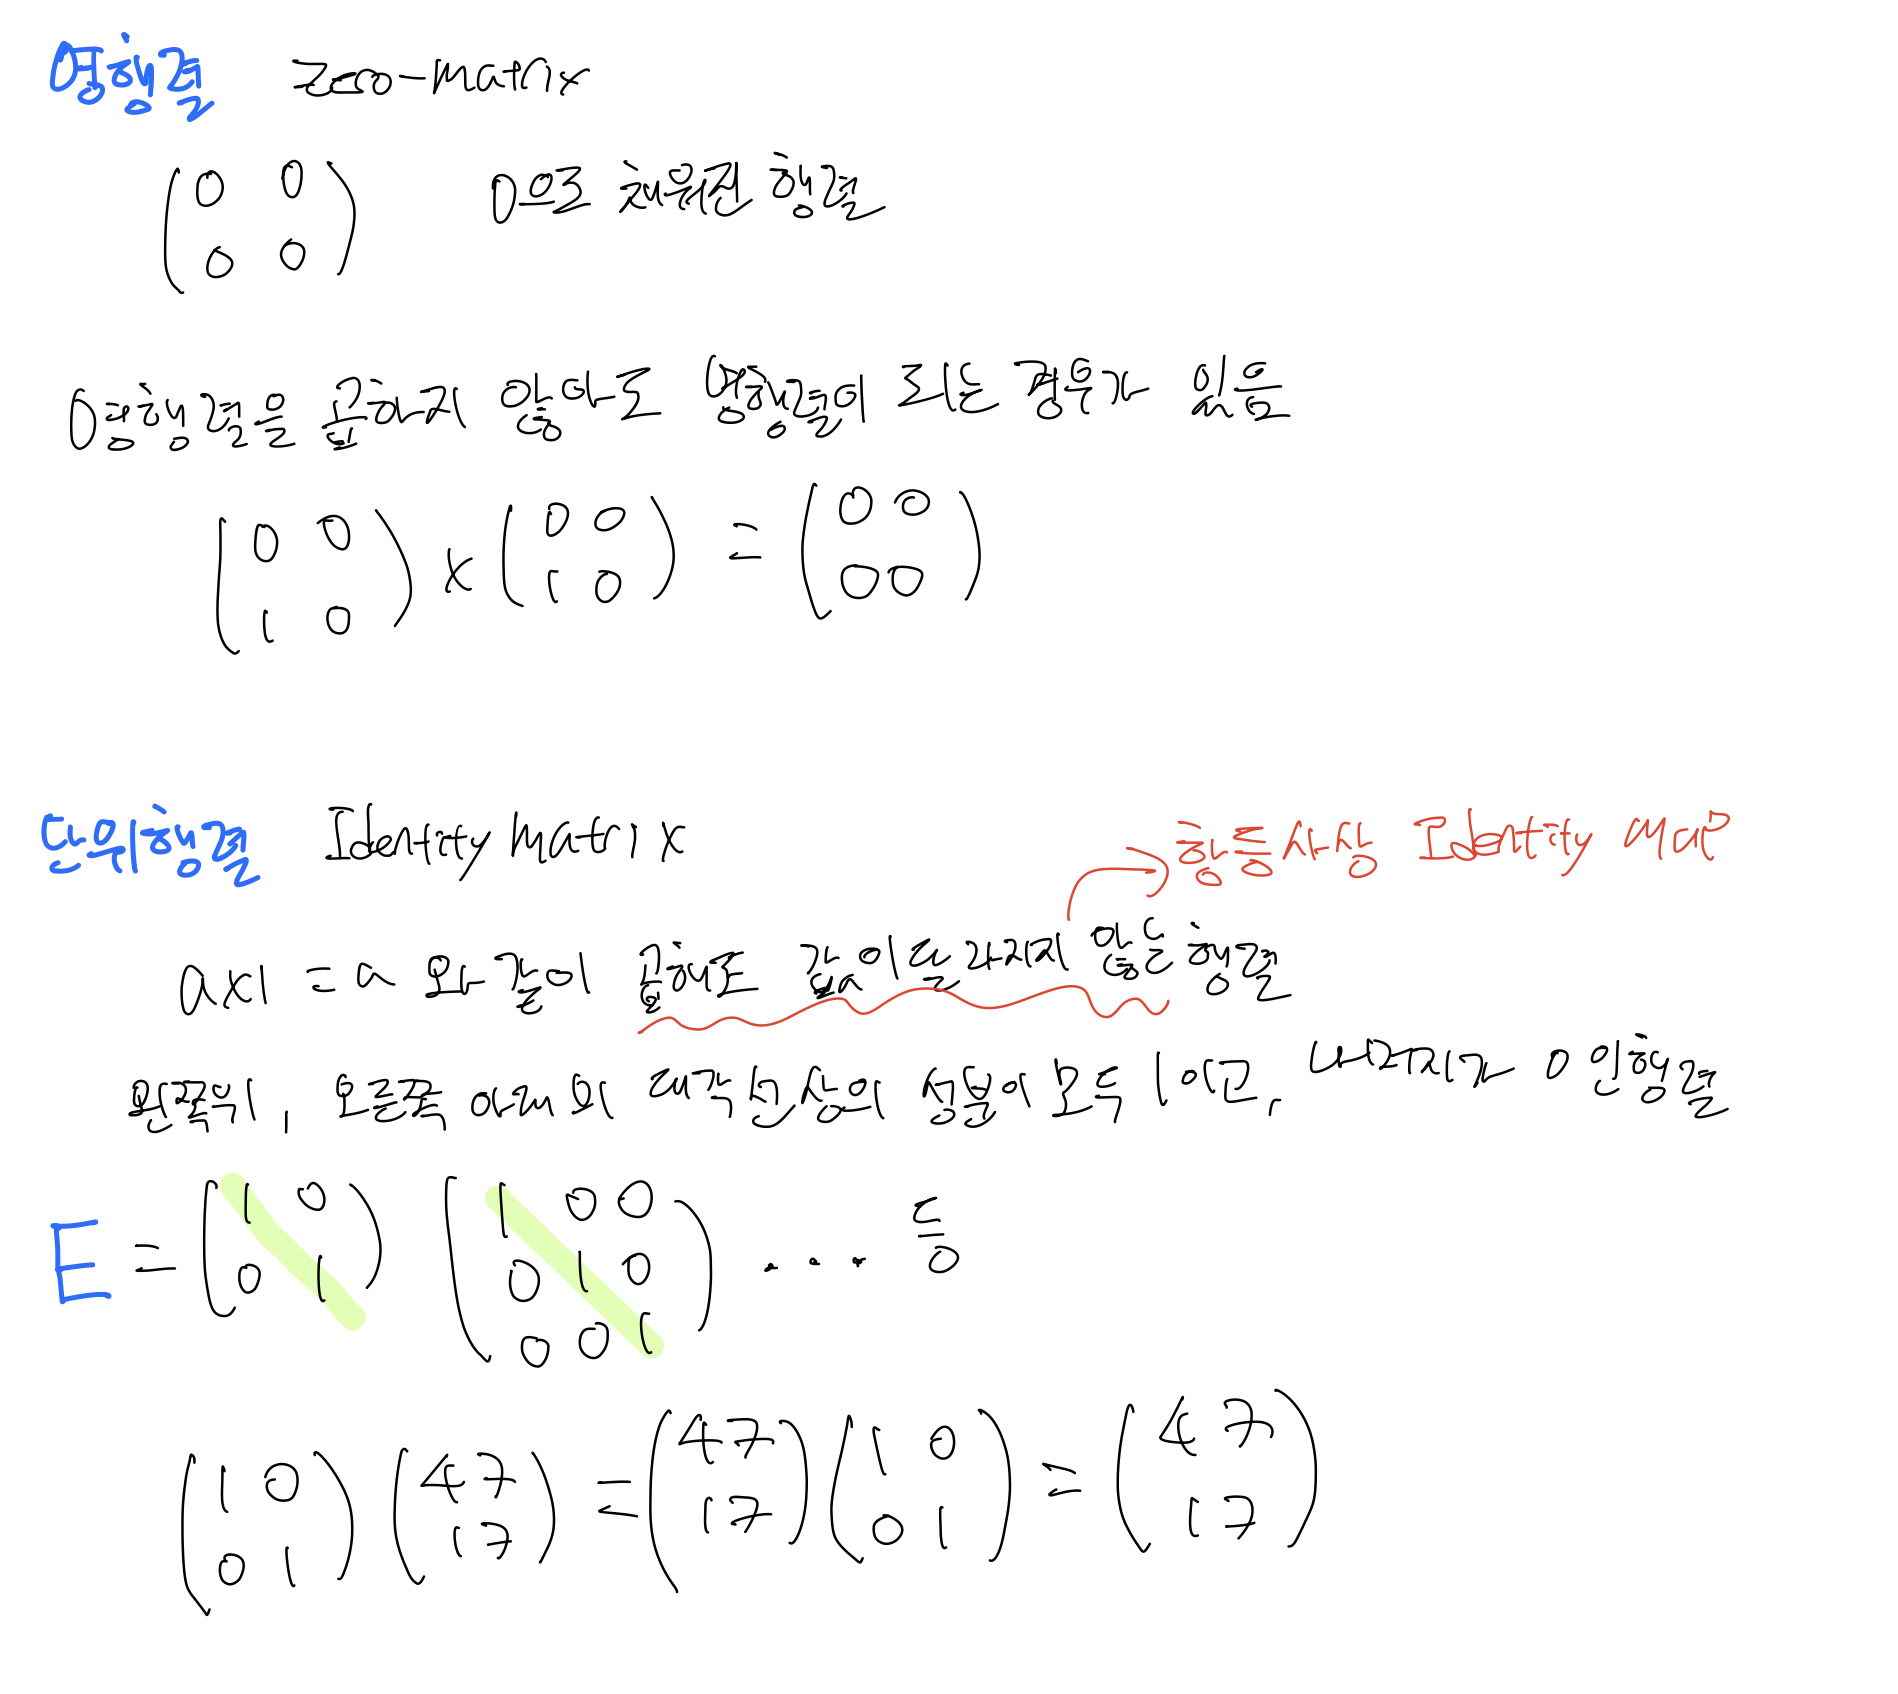 영행렬 Zero-Matrix
(0 0
0 0) 0으로 채워진 행렬
0영행렬을 곱하지 않아도 영행렬이 되는 경우가 있음
(0 0
1 0) × (0 0
1 0) = (0 0
0 0)
단위행렬 Identity Matrix
항등사상 Identity Map
a×1 = a 와 같이 곱해도 값이 달라지지 않는 행렬
왼쪽위, 오른쪽 아래의 대각선상의 성분이 모두 1이고, 나머지가 0인행렬
E = (1 0
0 1) (1 0 0
0 1 0
0 0 1) ... 등
(1 0
0 1) (4 7
1 7) = (4 7
1 7) (1 0
0 1) = (4 7
1 7)